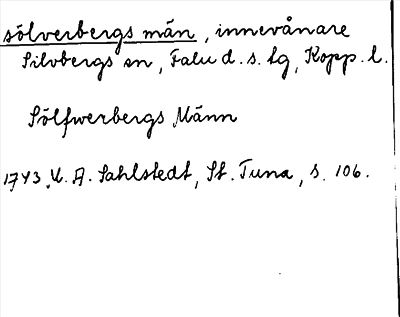 sölverbergs män, innevånare
Silvbergs sn, Falu d. s. lg, Kopp. l.
Sölfwerbergs Männ
1743. A. Sahlstedt, St. Tuna, s. 106.